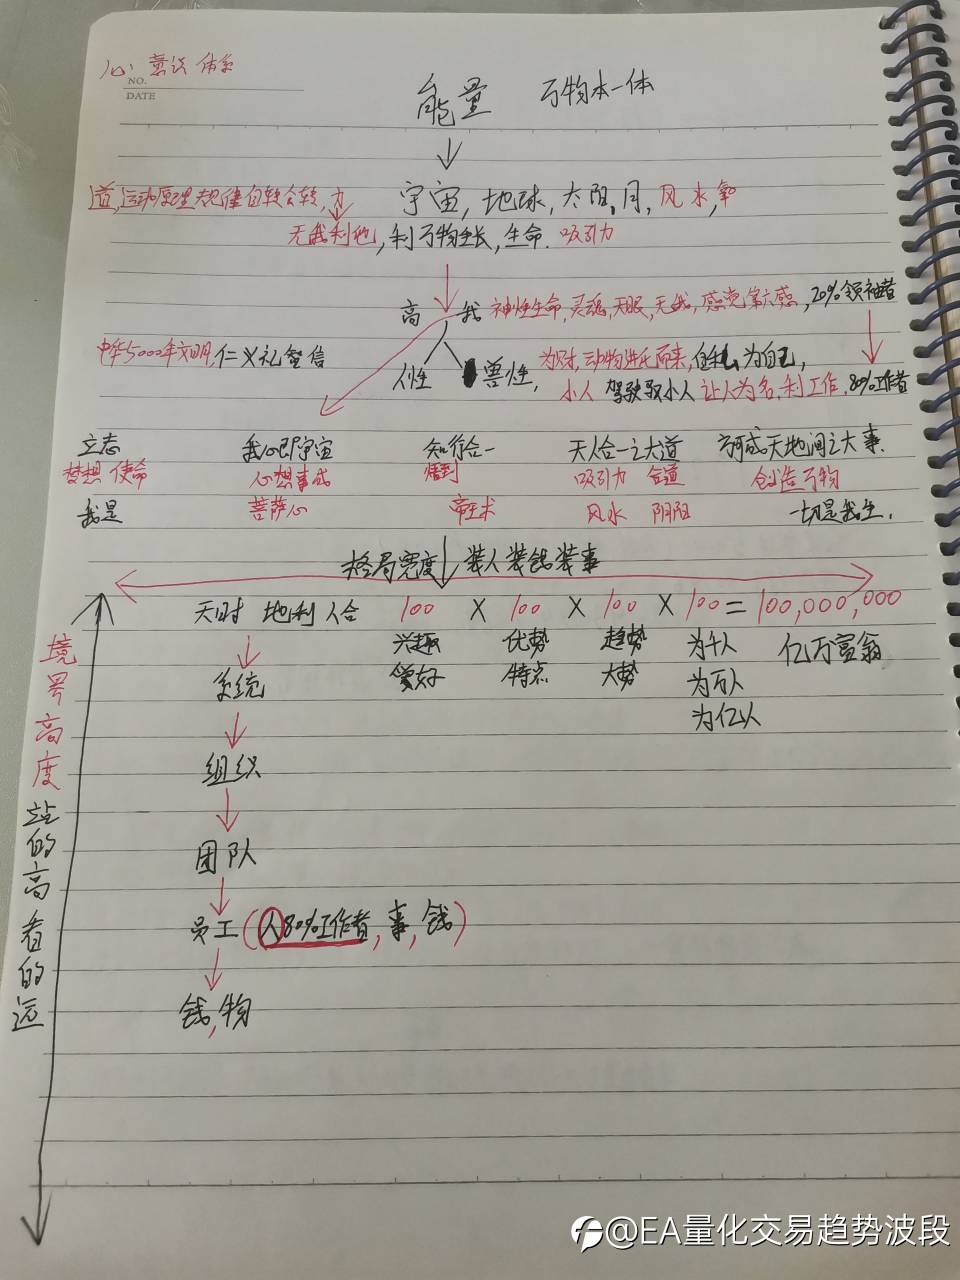 心 意识 体系
NO.
DATE
能量 万物本一体
道,运动原理规律自转公转,力 宇宙,地球,太阳,月,风水,氧
无我利他,利万物生长,生命.吸引力
高 我 神性生命,灵魂,天眼,无我,感觉第六感,20%领袖者
中华5000年文明,仁义礼智信 人性 兽性,为财,动物进化而来,自私,为自己,
小人 驾驶驭小人 让人为名,利工作.80%工作者
立志 我心即宇宙 知行合一 天人合一之大道 方可成天地间之大事.
梦想 使命 心想事成 悟到 吸引力 合道 创造万物
我是 菩萨心 帝王术 风水 阴阳 一切是我生.
格局宽度 装人装钱装事
天时 地利 人合 100 X 100 X 100 X 100 = 100,000,000
兴趣 优势 趋势 为千人 亿万富翁
爱好 特点 大势 为万人
为亿人
系统
组织
团队
员工(人80%工作者,事,钱)
钱,物
境界高度 站的高看的远
@EA量化交易趋势波段